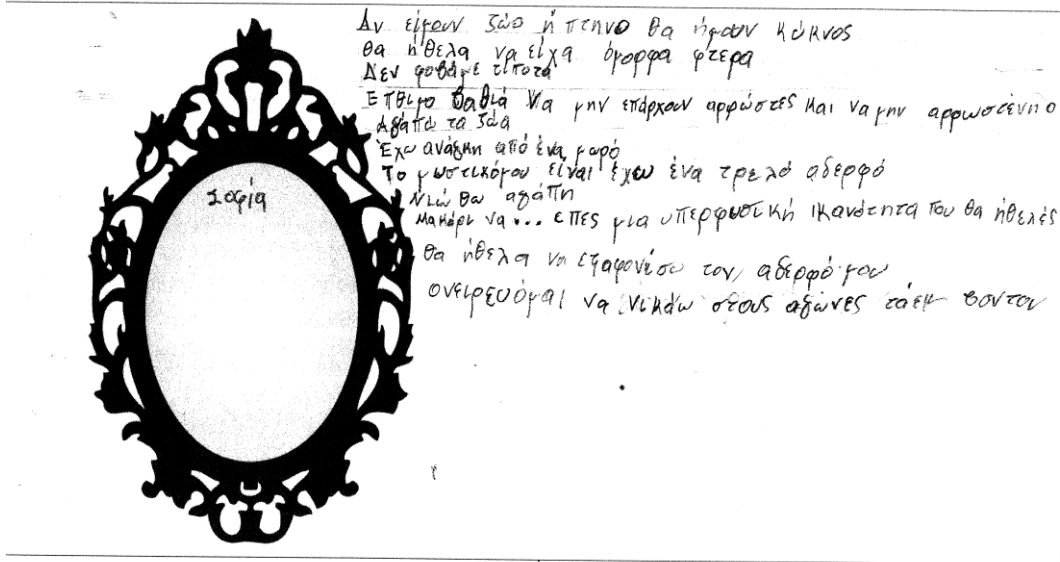 Αν είμουν ζώο ή πτηνό θα ήμουν κύκνος
θα ήθελα να είχα όμορφα φτερά
Δεν φοβάμε τίποτα
Επθιμο βαθιά Να μην επάρχουν αρρώστες και να μην αρρωσταίνη ο
Αγαπώ τα ζώα
Έχω ανάγκη από ένα μωρό
Το μωστικόμου είναι έχω ένα τρελό αδερφό
Νιώθω αγάπη
Μακάρι να... επες μια υπερφυσική ικανότητα που θα ήθελές
Σοφία
θα ήθελα να εξαφονέσω τον αδερφό μου
ονειρεύομαι να νικάω στους αγώνες τάεκ βοντον